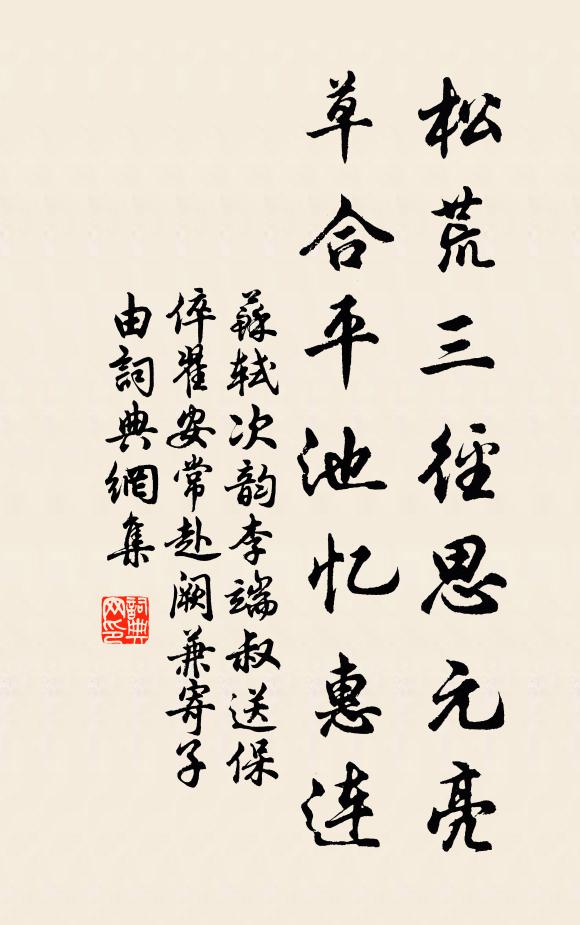 松荒三径思元亮
草合平池忆惠连
蘇軾次韵李端叔送保
倅翟安常赴阙兼寄子
由詞典網集
詞典网印